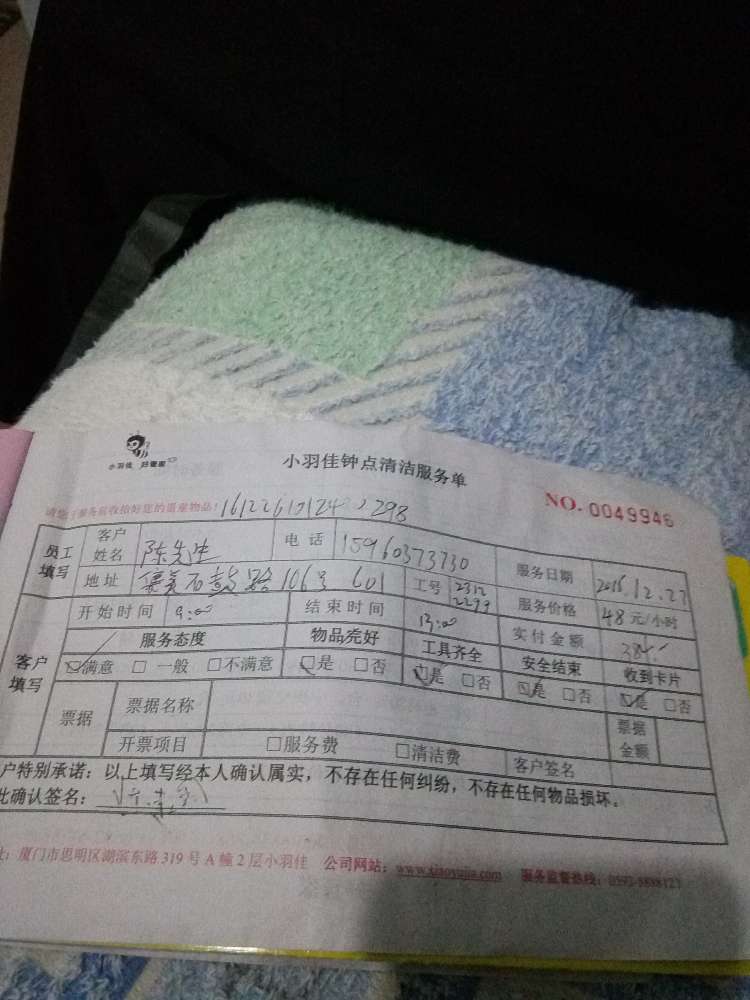 小羽佳 好管家
小羽佳钟点清洁服务单
NO. 0049946
298
员工填写 客户姓名 陈先生 电话 15960373730 服务日期 2016.12.27
地址 集美石鼓路106号 601 工号 2312 2299 服务价格 48元/小时
客户填写 开始时间 9:00 结束时间 13:00 实付金额 384.-
服务态度 物品完好 工具齐全 安全结束 收到卡片
☑满意 □一般 □不满意 ☑是 □否 ☑是 □否 ☑是 □否 ☑是 □否
票据 票据名称 票据金额
开票项目 □服务费 □清洁费 客户签名
户特别承诺：以上填写经本人确认属实，不存在任何纠纷，不存在任何物品损坏。
此确认签名：
址：厦门市思明区湖滨东路319号A幢2层小羽佳 公司网站：www.xiaoyujia.com 服务监督热线：0592-5888127